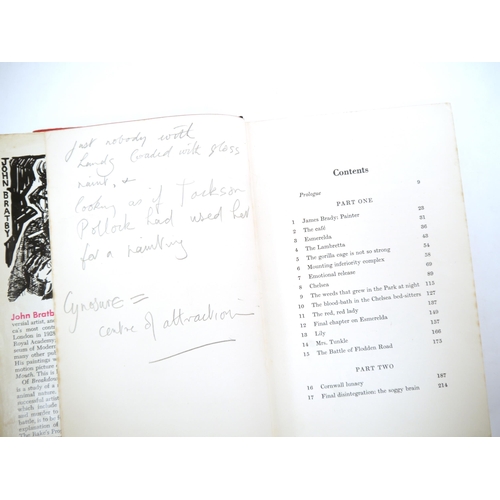 JOHN
BRATBY
John Bratb
versial artist, and
London in 1928
Royal Academy
seum of Modern
many other pub
His paintings w
motion picture
Mouth. This is
Of Breakdown
is a study of a
animal nature,
successful artist
which includ
and resorts to
battle, is to be
explanation of
The Rake's Pro
just nobody with
hands loaded with gloss
paint, &
looking as if Jackson
Pollock had used her
for a painting
Cynosure =
centre of attraction
Contents
Prologue 9
PART ONE
1 James Brady: Painter 23
2 The café 31
3 Esmerelda 36
4 The Lambretta 45
5 The gorilla cage is not so strong 54
6 Mounting inferiority complex 58
7 Emotional release 69
8 Chelsea 69
9 The weeds that grew in the Park at night 115
10 The blood-bath in the Chelsea bed-sitters 127
11 The red, red lady 137
12 Final chapter on Esmerelda 140
13 Lily 155
14 Mrs. Tunkle 166
15 The Battle of Flodden Road 173
PART TWO
16 Cornwall lunacy 187
17 Final disintegration: the soggy brain 214